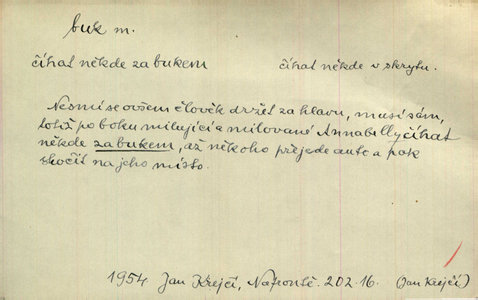 buk m.
číhat někde za bukem číhat někde v skrytu.
Nesmí se ovšem člověk držet za hlavu, musí sám,
totiž po boku milující a milované Annabelly číhat
někde za bukem, až někoho přejede auto a pak
skočit na jeho místo.
1954 Jan Krejčí, Na frontě. 202.16. (Jan Krejčí)